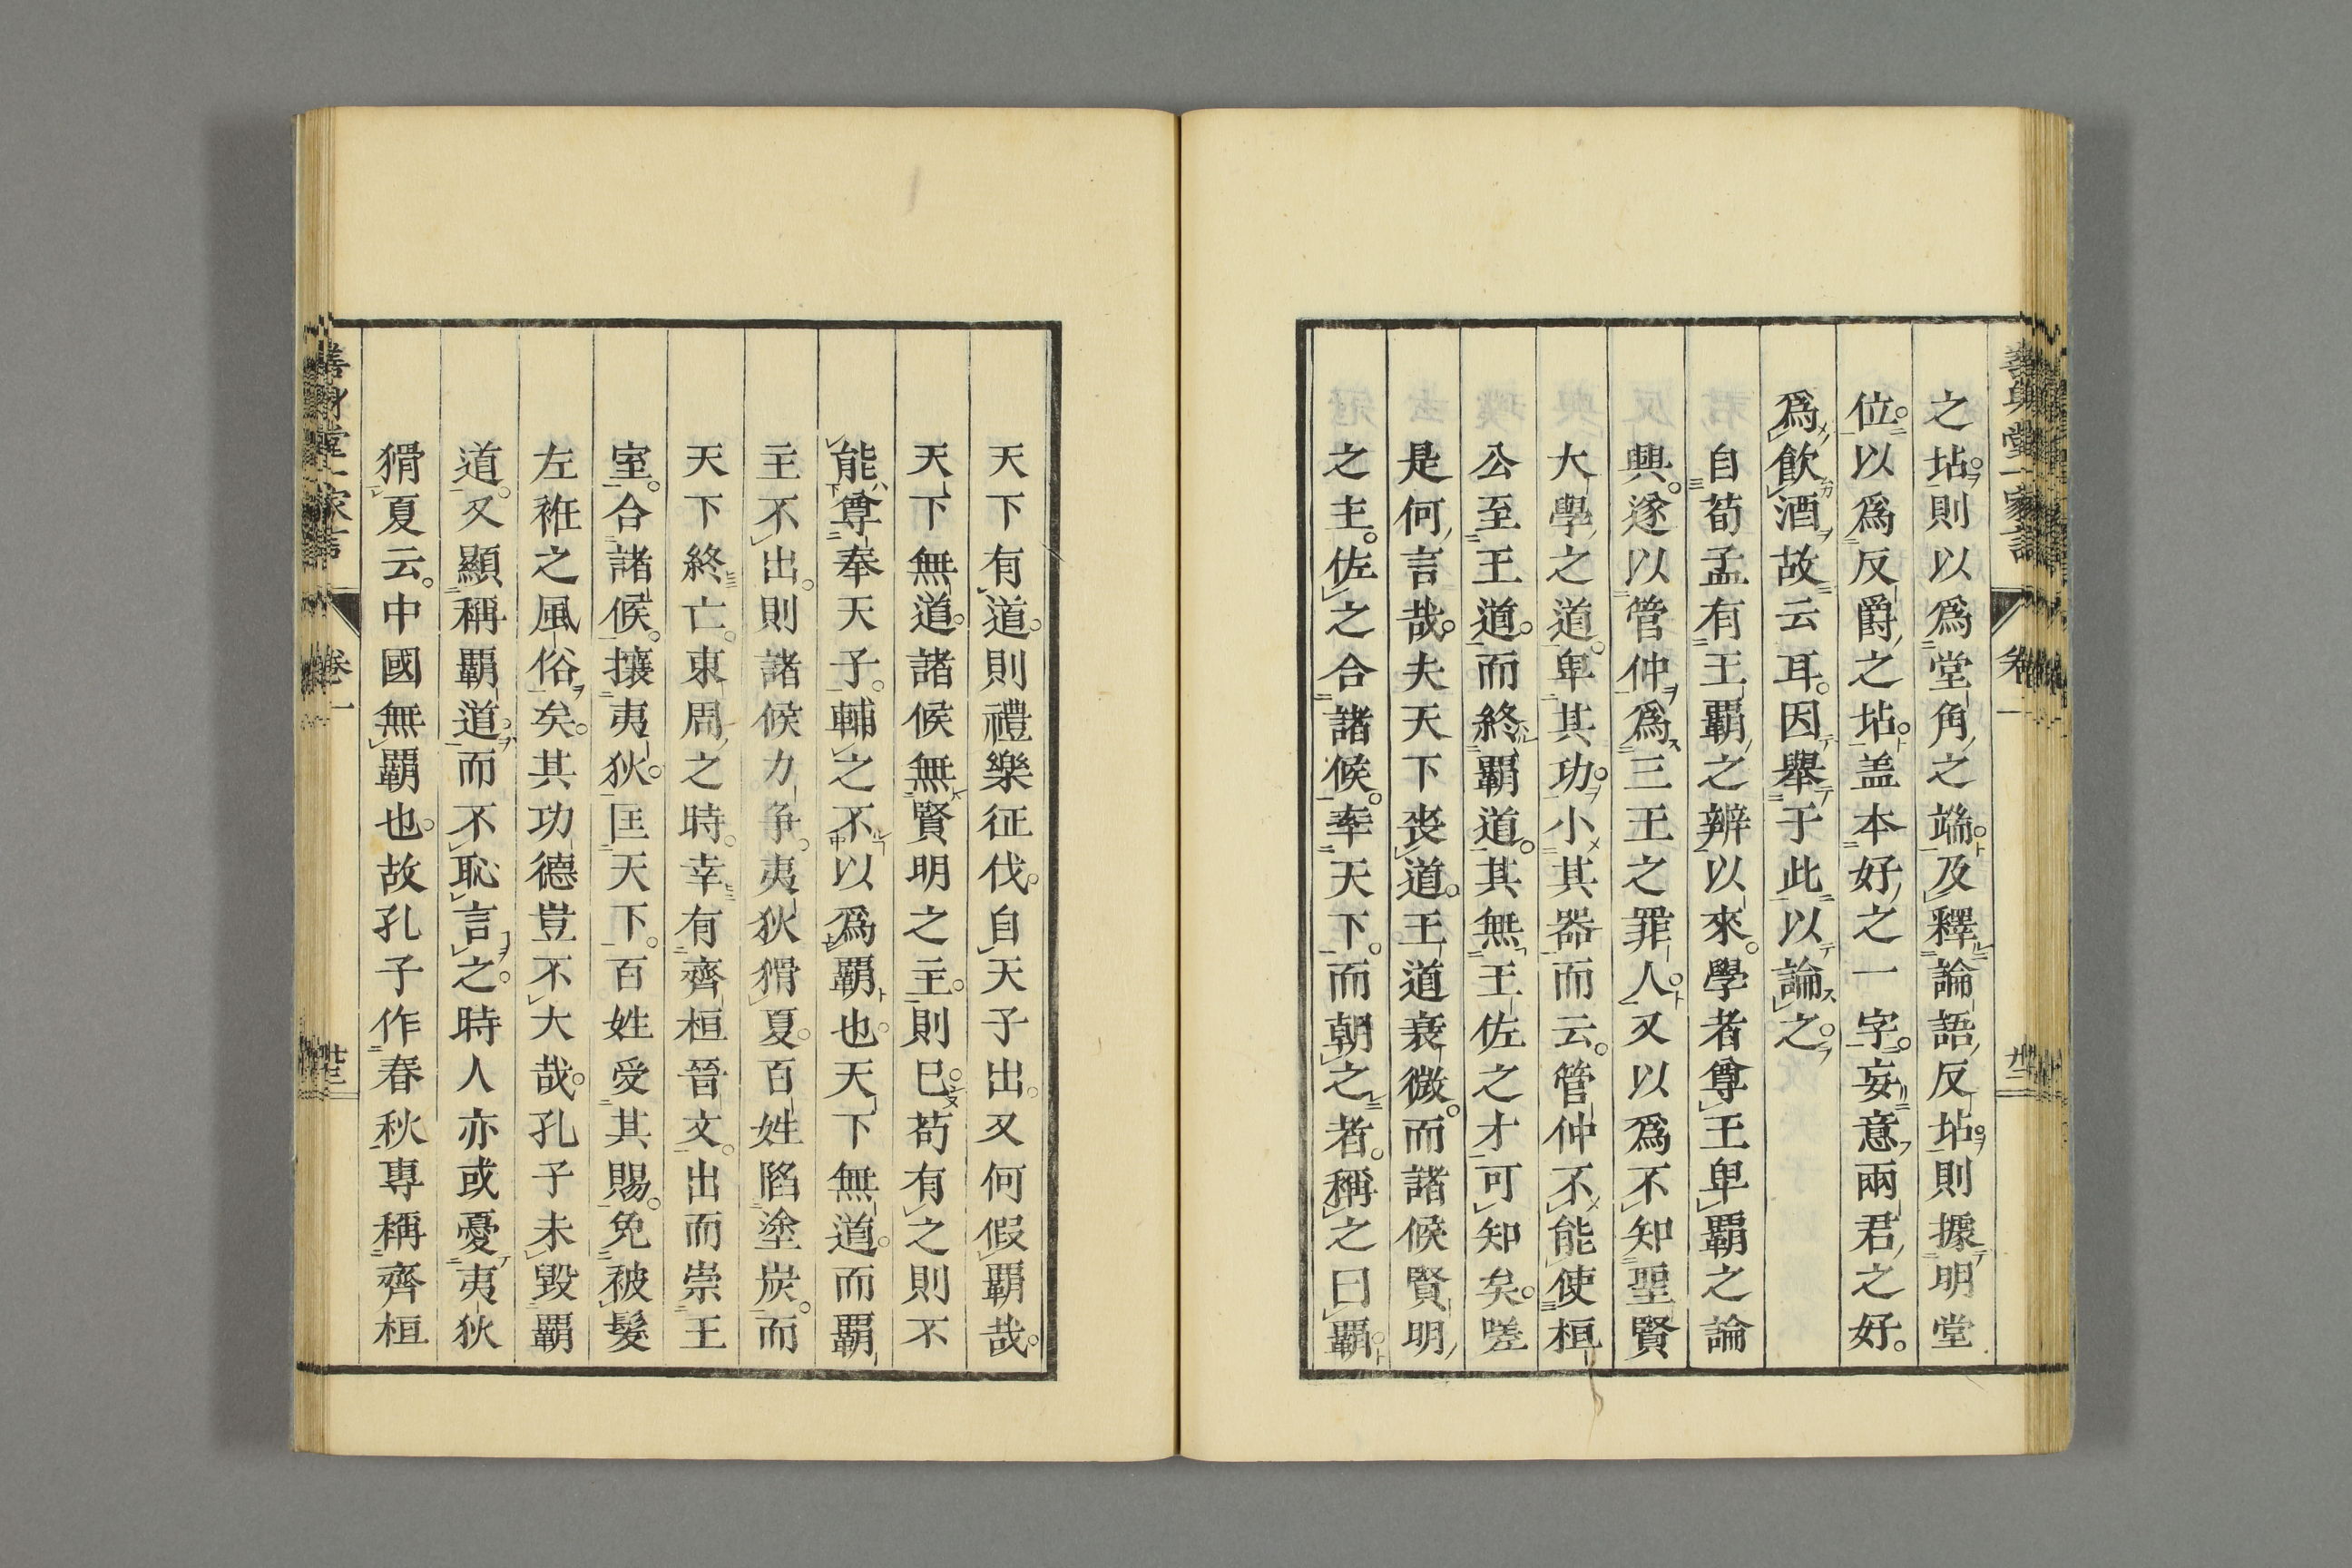 之坫則以爲堂角之端及釋論語反坫則據明堂
位以爲反爵之坫盖本好之一字妄意兩君之好
爲飲酒故云耳因舉于此以論之
自荀孟有王覇之辨以來學者尊王卑覇之論
興遂以管仲爲三王之罪人又以爲不知聖賢
大學之道卑其功小其器而云管仲不能使桓
公至王道而終覇道其無王佐之才可知矣嗟
是何言哉夫天下喪道王道衰微而諸侯賢明
之主佐之合諸侯率天下而朝之者稱之曰覇
天下有道則禮樂征伐自天子出又何假覇哉
天下無道諸侯無賢明之主則已苟有之則不
能尊奉天子輔之不以爲覇也天下無道而覇
主不出則諸侯力争夷狄猾夏百姓陷塗炭而
天下終亡東周之時幸有齊桓晉文出而崇王
室合諸侯攘夷狄匡天下百姓受其賜免被髮
左衽之風俗矣其功德豈不大哉孔子未毀覇
道又顯稱覇道而不恥言之時人亦或憂夷狄
猾夏云中國無覇也故孔子作春秋專稱齊桓
卷一